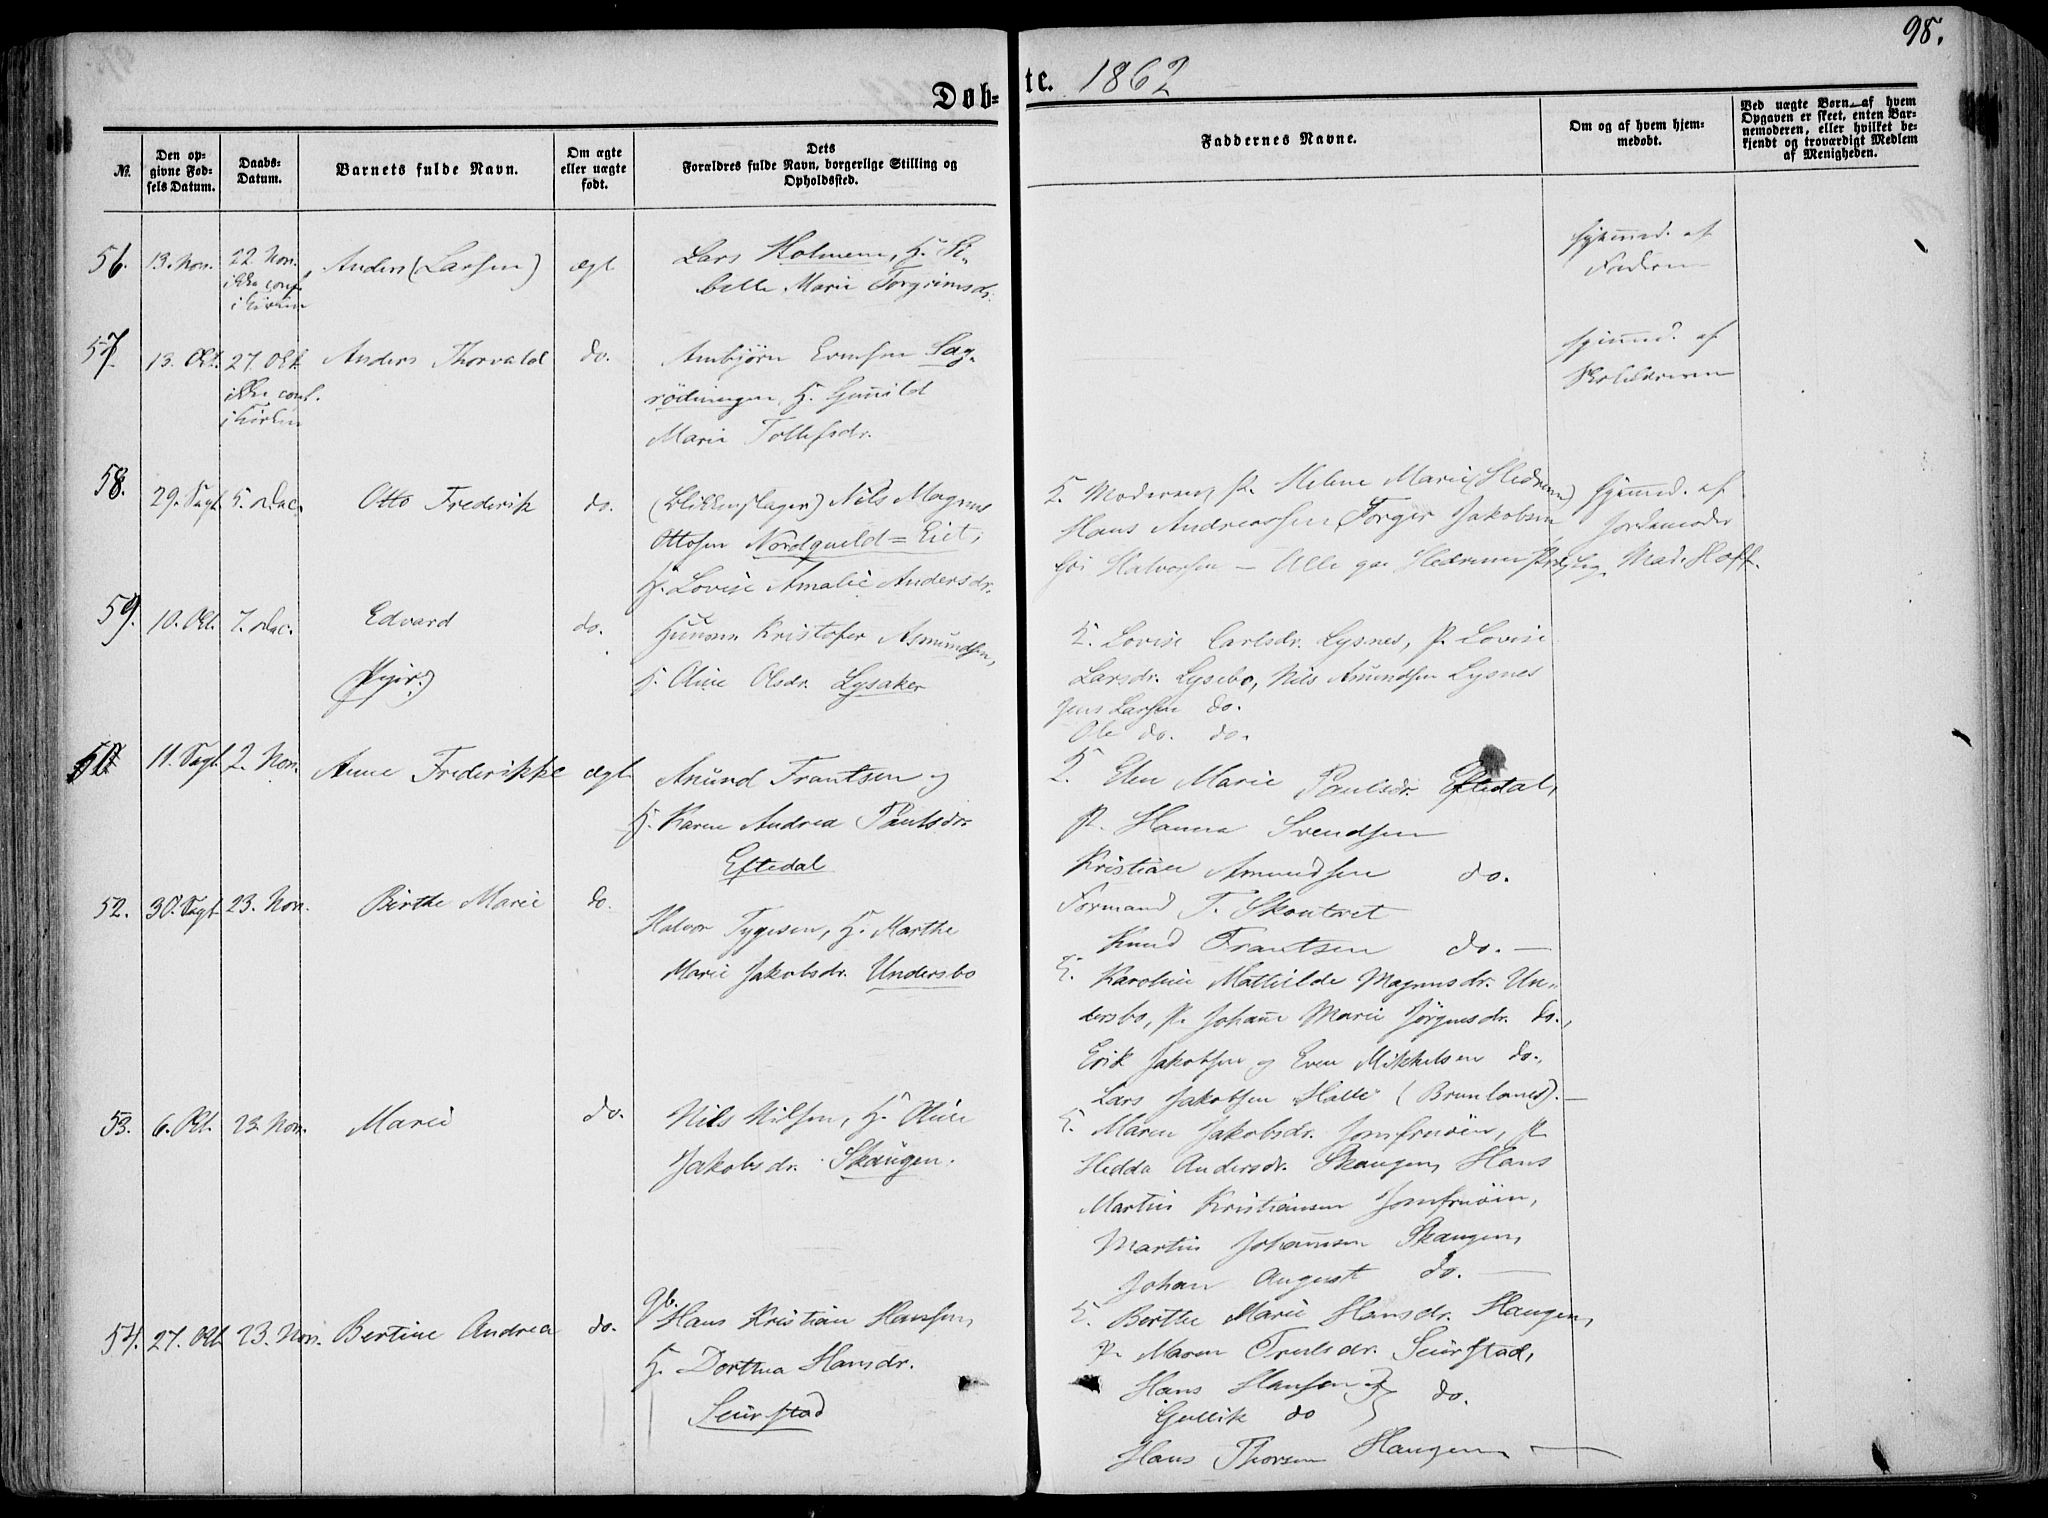 98.
Døb=
te. 1862
№.
Den op-
givne Fød-
sels Datum.
Daabs-
Datum.
Barnets fulde Navn.
Om ægte
eller uægte
født.
Dets
Forældres fulde Navn, borgerlige Stilling og
Opholdssted.
Faddernes Navne.
Om og af hvem hjem-
medøbt.
Ved uægte Børn af hvem
Opgaven er skeet, enten Bar-
nemoderen, eller hvilket be-
kjendt og troværdigt Medlem
af Menigheden.
56. 13. Nov. 22. Nov. Anders (Larsen) ægt Lars Holmene, H. Si-
belle Marie Torgrimsdr.
ikke conf.
i Kirken
hjemmed. af
Faderen
57 13. Okt. 27. Okt. Anders Thorvald do. Ambjørn Evensen Sag-
rødningen, H. Gunild
Marie Tollefsdr.
ikke conf.
i Kirken
hjemmed. af
58. 29. Sept. 5. Dec. Otto Frederik do. (Blikkenslager) Nils Magnus
Ottosen Nordqueld=Eiet;
H. Lovise Amalie Andersdr.
F. Moderen, P. Helene Marie (Hedrum)
Hans Andreassen, Torger Jakobsen
Halvorsen — Alle paa Hedrum
hjemmed. af
Jordemoder
Mad. Hoff.
59. 10. Okt. 7. Dec. Edvard do. Gunner Kristofer Asmundsen,
H. Oline Olsdr. Lysaker
F. Lovise Carlsdr. Lysnes, P. Lovise
Larsdr. Lysebo, Nils Amundsen Lysnes
Jens Larsen do.
Ole do. do.
11. Sept. 2. Nov. Anne Frederikke ægt Anund Frantsen og
H. Karen Andrea Paulsdr.
Eftedal
F. Elen Marie Paulsdr. Eftedal,
P. Hanna Svendsen
Kristian Amundsen do.
Formand T. Skontvet
Knud Frantsen do. —
52. 30. Sept. 23. Nov. Birthe Marie do. Halvor Tygesen, H. Marthe
Marie Jakobsdr. Undersbo
F. Karoline Mathilde Magnusdr. Un-
dersbo, P. Johanne Marie Jørgensdr. do.,
Erik Jakobsen og Even Mikkelsen do.,
Lars Jakobsen Halle (Brunlanes). —
53. 6. Okt. 23. Nov. Marie do. Nils Nilsen, H. Oline
Jakobsdr. Skaugen.
F. Maren Jakobsdr. Jomfruøien, P.
Hedda Andersdr. Skaugen, Hans
Martin Kristiansen Jomfruøien,
Martin Johannsen Skaugen,
Johan August do. —
54. 27. Okt. 23. Nov. Bertine Andrea do. Gb. Hans Kristian Hansen,
H. Dorthea Hansdr.
Seierstad
F. Berthe Marie Hansdr. Haugen,
P. Maren Trulsdr. Seierstad,
Hans Hansen og do.
Gullik do
Hans Thorsen Haugen —